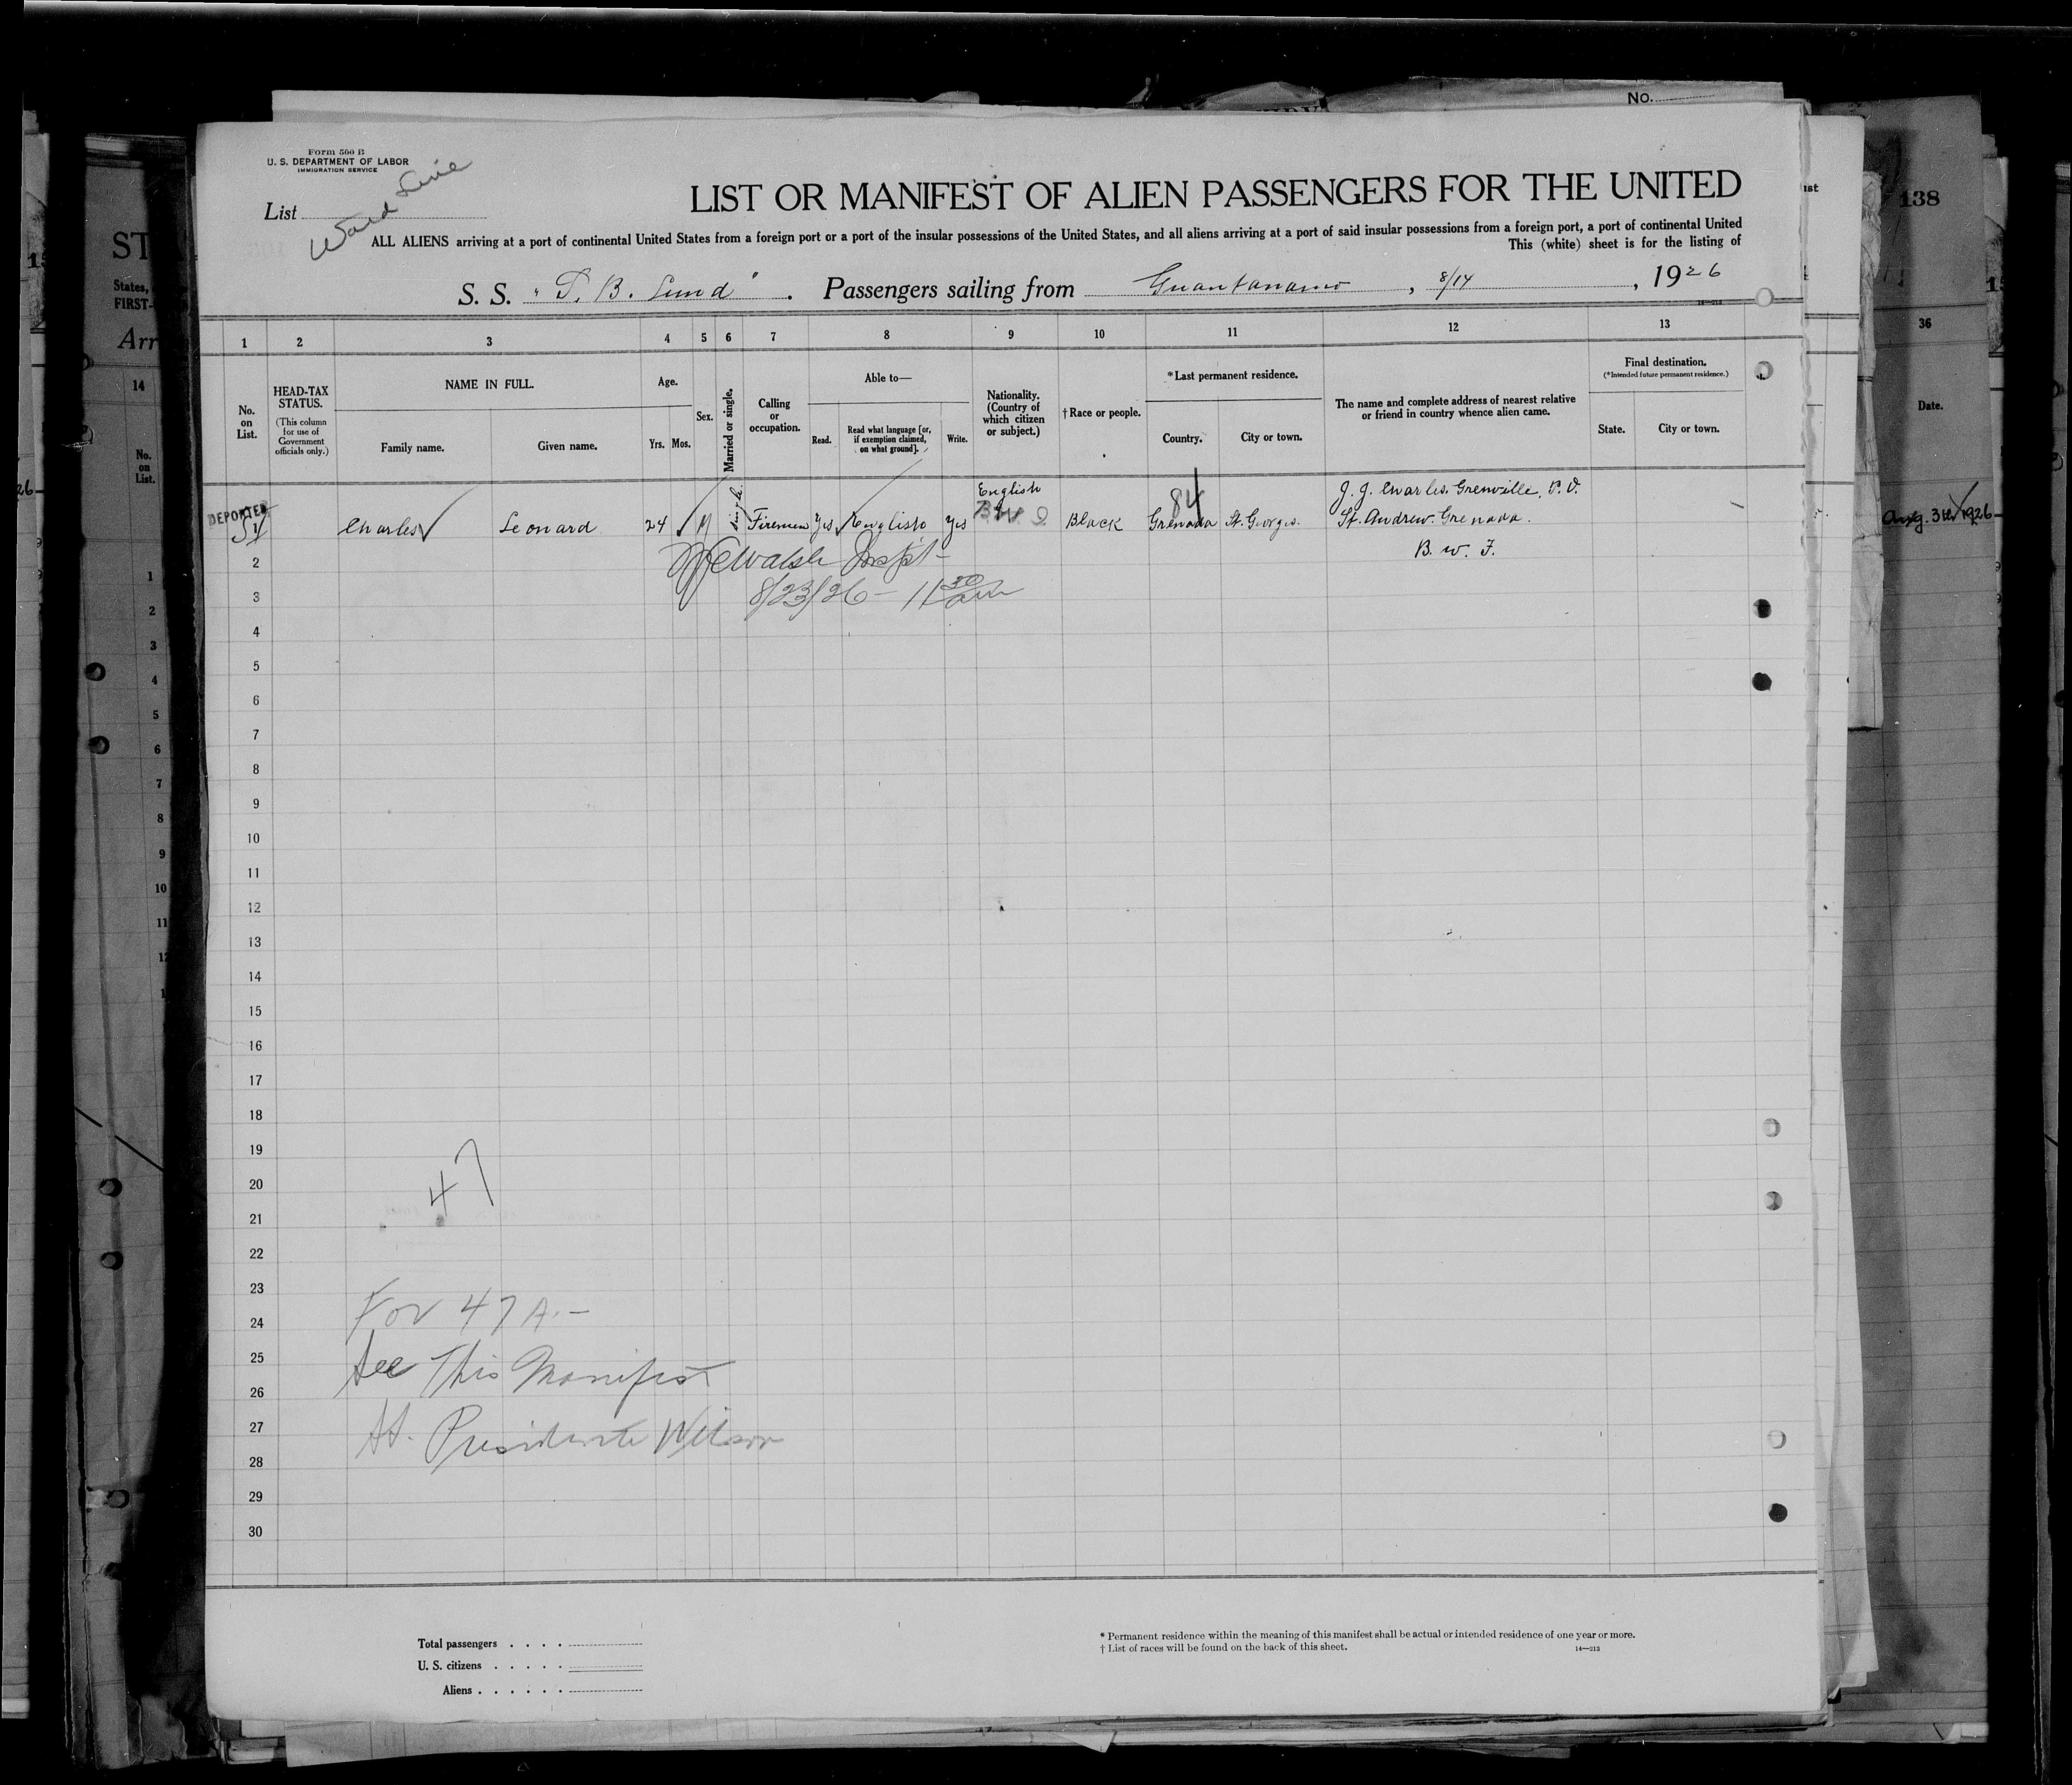 No.
Form 500 B
U. S. DEPARTMENT OF LABOR
IMMIGRATION SERVICE
Ward Line
List
LIST OR MANIFEST OF ALIEN PASSENGERS FOR THE UNITED
ALL ALIENS arriving at a port of continental United States from a foreign port or a port of the insular possessions of the United States, and all aliens arriving at a port of said insular possessions from a foreign port, a port of continental United
This (white) sheet is for the listing of
S. S. "T. B. Lund". Passengers sailing from Guantanamo, 8/14, 1926
1 2 3 4 5 6 7 8 9 10 11 12 13
No. on List.
HEAD-TAX STATUS.
(This column for use of Government officials only.)
NAME IN FULL.
Family name. Given name.
Age.
Yrs. Mos.
Sex.
Married or single.
Calling or occupation.
Able to—
Read. Read what language [or, if exemption claimed, on what ground]. Write.
Nationality. (Country of which citizen or subject.)
†Race or people.
*Last permanent residence.
Country. City or town.
The name and complete address of nearest relative or friend in country whence alien came.
Final destination.
(*Intended future permanent residence.)
State. City or town.
DEPORTED
1 Charles Leonard 24 M Single Fireman Yes English Yes English Black Grenada St. Georges. J. J. Charles. Grenville. P. O.
84
St. Andrew. Grenada.
B. W. I.
2 Walsh Inspt-
3 8/23/26 - 11 30 am
4
5
6
7
8
9
10
11
12
13
14
15
16
17
18
19
20
47
21
22
23
24 For 47 A. -
25 See This Manifest
26
27 St. Presidente Wilson
28
29
30
Total passengers
U. S. citizens
Aliens
* Permanent residence within the meaning of this manifest shall be actual or intended residence of one year or more.
† List of races will be found on the back of this sheet.
14—213
ST
States,
FIRST-
Arr
14
No. on List.
1
2
3
4
5
6
7
8
9
10
11
138
36
Date.